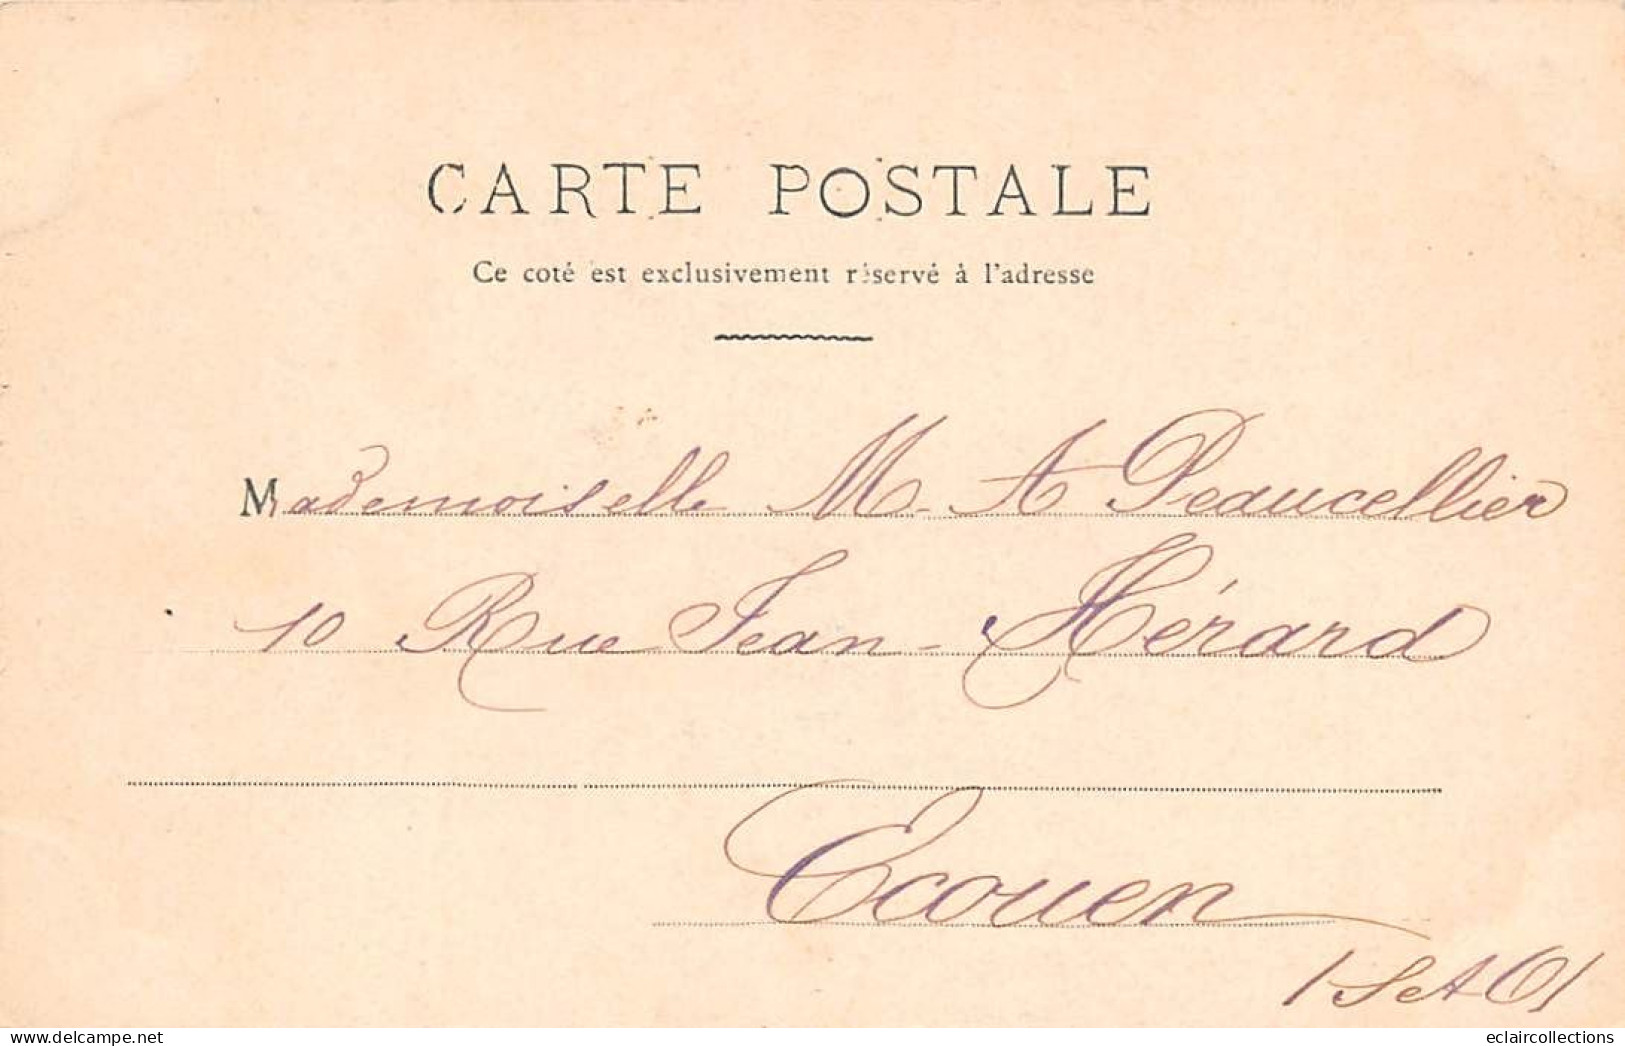 CARTE POSTALE
Ce coté est exclusivement réservé à l'adresse
Mademoiselle M. A Peaucellier
10 Rue Jean-Hérard
Ecouen
/S et O/
eclaircollections